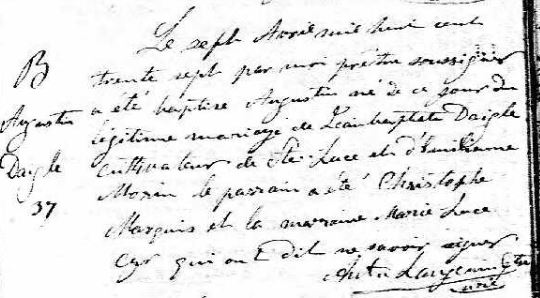 B
Augustin
Daigle
37
Le sept Avril mil huit cent
trente sept par moi prêtre soussigné
a été baptisé Augustin né de ce jour du
légitime mariage de Jean baptiste Daigle
cultivateur de Ste Luce et d'Emilienne
Morin le parrain a été Christophe
Marquis et la marraine Marie Luce
Cyr qui ont dit ne savoir signer
Ant. Langevin Ptre
curé